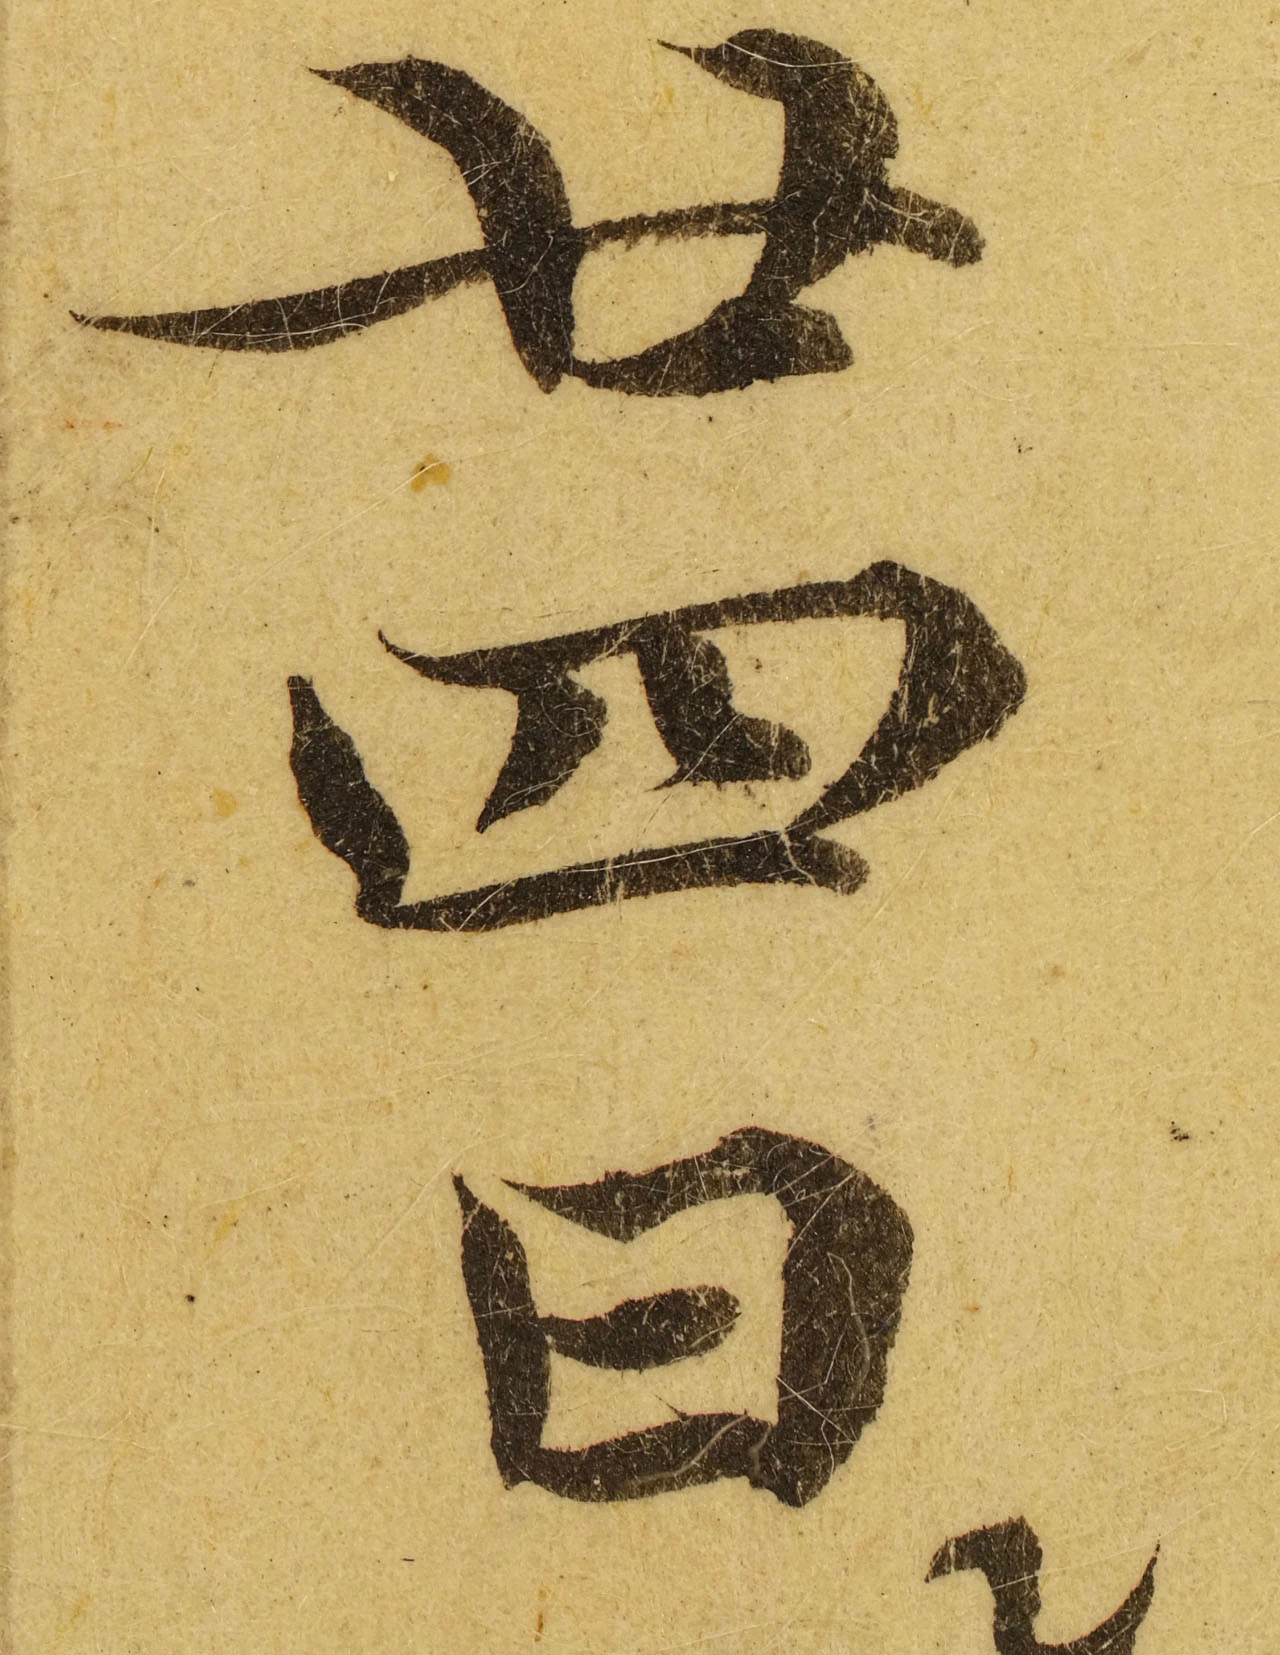 廿四日